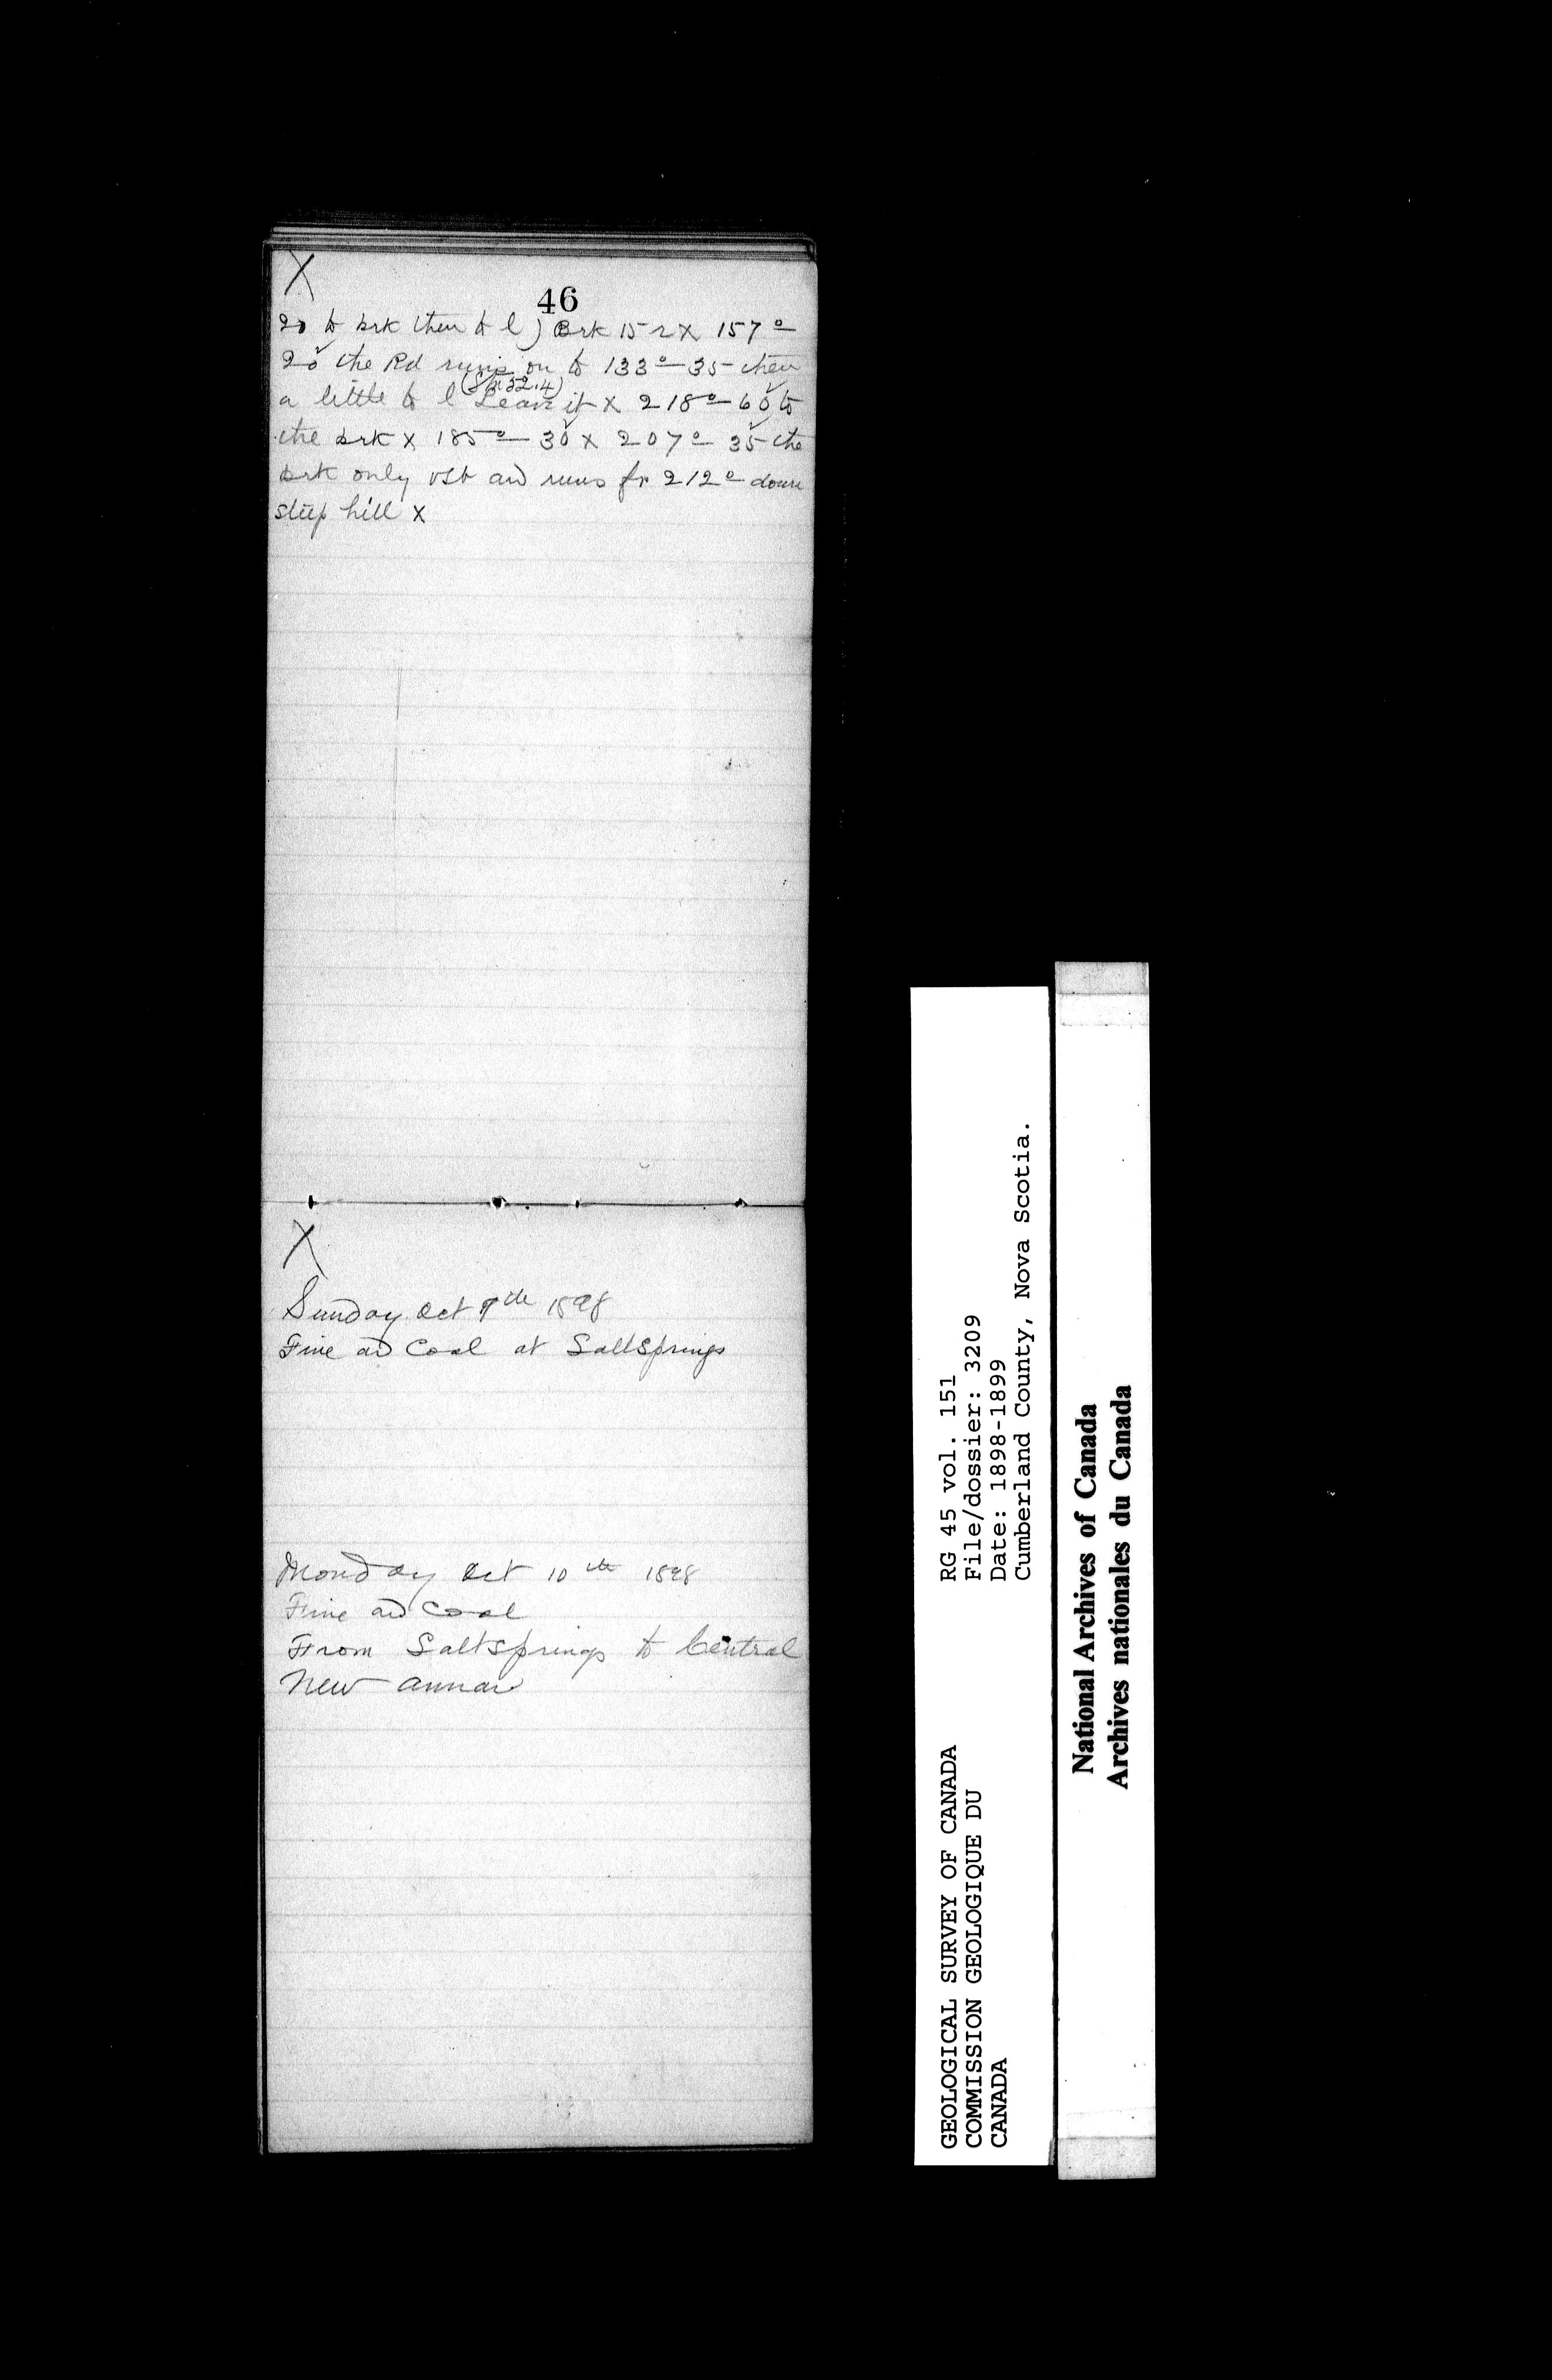 X
46
20 to brk then to l) Brk 15 r X 157°
20 the Rd runs on to 133° 35 then
(Sta 52.4)
a little to l Leave it X 218° 60 to
the brk X 185° 30 X 207° 35 the
brk only and runs fr 212° down
steep hill X
X
Sunday Oct 9th 1898
Fine and Cool at Saltsprings
Monday Oct 10th 1898
Fine and Cool
From Saltsprings to Central
New Annan
GEOLOGICAL SURVEY OF CANADA
COMMISSION GEOLOGIQUE DU
CANADA
RG 45 vol. 151
File/dossier: 3209
Date: 1898-1899
Cumberland County, Nova Scotia.
National Archives of Canada
Archives nationales du Canada